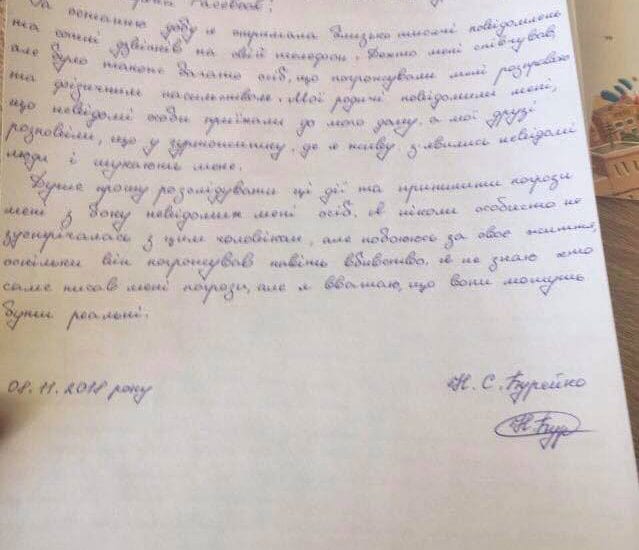 Facebook!
За останню добу я отримала близько тисячі повідомлень
та сотні дзвінків на свій телефон. Дехто мені співчував,
але було також багато осіб, що погрожували мені розправою
та фізичним насильством. Мої родичі повідомили мені,
що невідомі особи приїхали до мого дому, а мої друзі
розповіли, що у гуртожитку, де я живу, з'явились невідомі
люди і шукають мене.
Дуже прошу розслідувати ці дії та припинити погрози
мені з боку невідомих мені осіб. Я ніколи особисто не
зустрічалась з цим чоловіком, але побоююсь за своє життя,
оскільки він погрожував навіть вбивством. Я не знаю хто
саме писав мені погрози, але я вважаю, що вони можуть
бути реальні.
08.11.2018 року
Н. С. Бурейко
Н. Бур